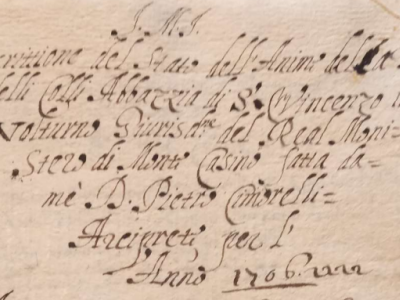 J. M. J.
crittione del Stato dell'Anime della
delli Colli Abbazzia di S. Vincenzo
Volturno Giurisd.ne del Real Moni=
stero di Monte Casino fatta da=
mè D. Pietro Cimorelli=
Arciprete per l'
Anno 1706.